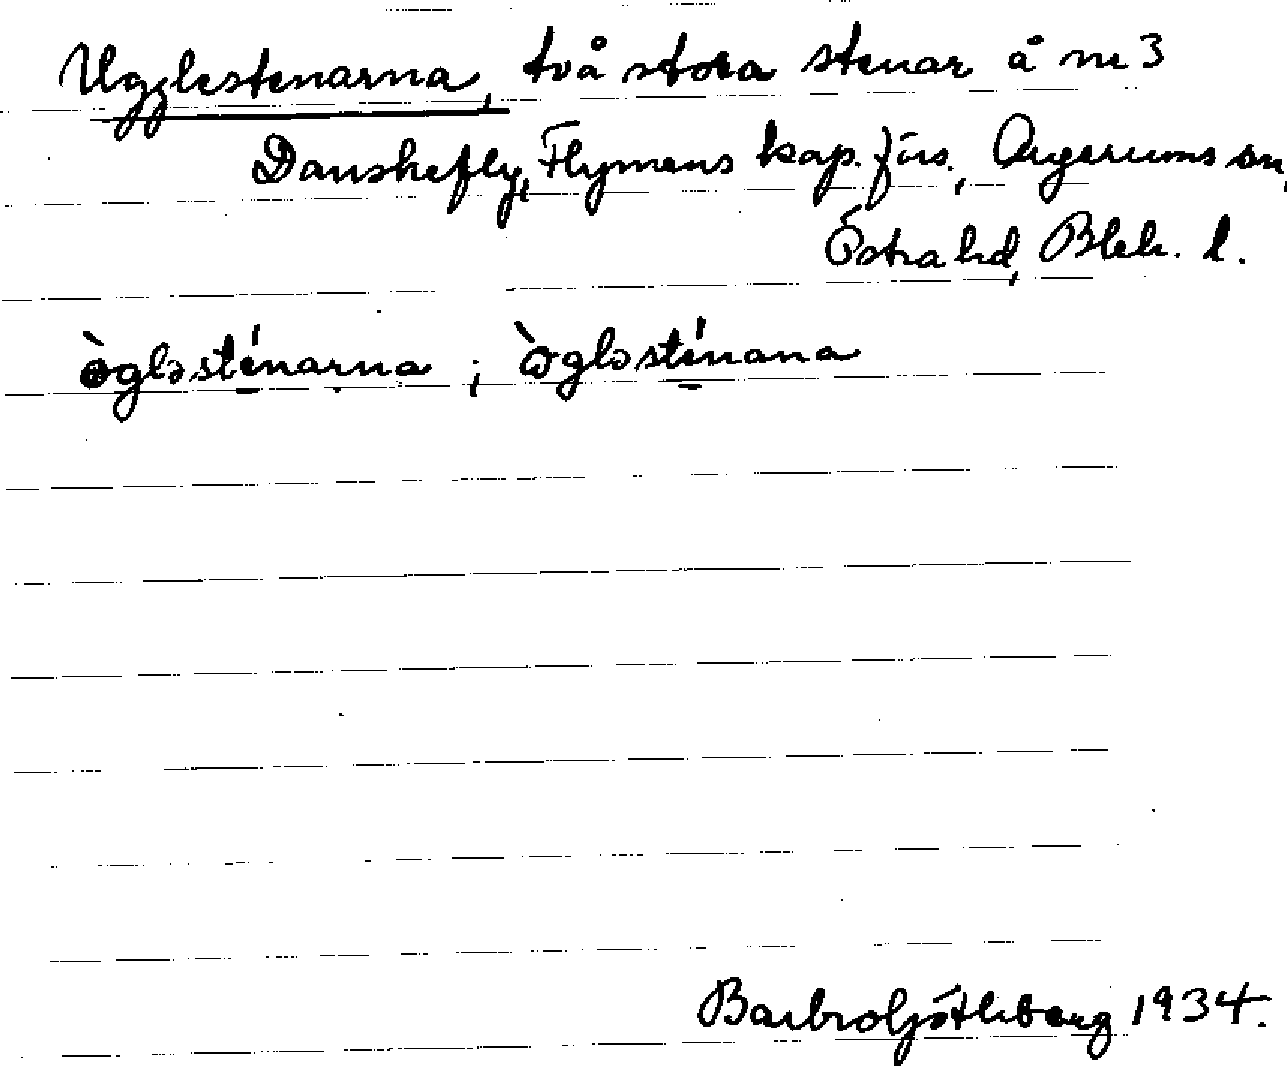 Ugglestenarna, två stora stenar å nr 3
Danskefly, Flymens kap. förs., Augerums sn,
Östra hd, Blek. l.
ògləsténarna ; ògləsténana
Barbro 1934.